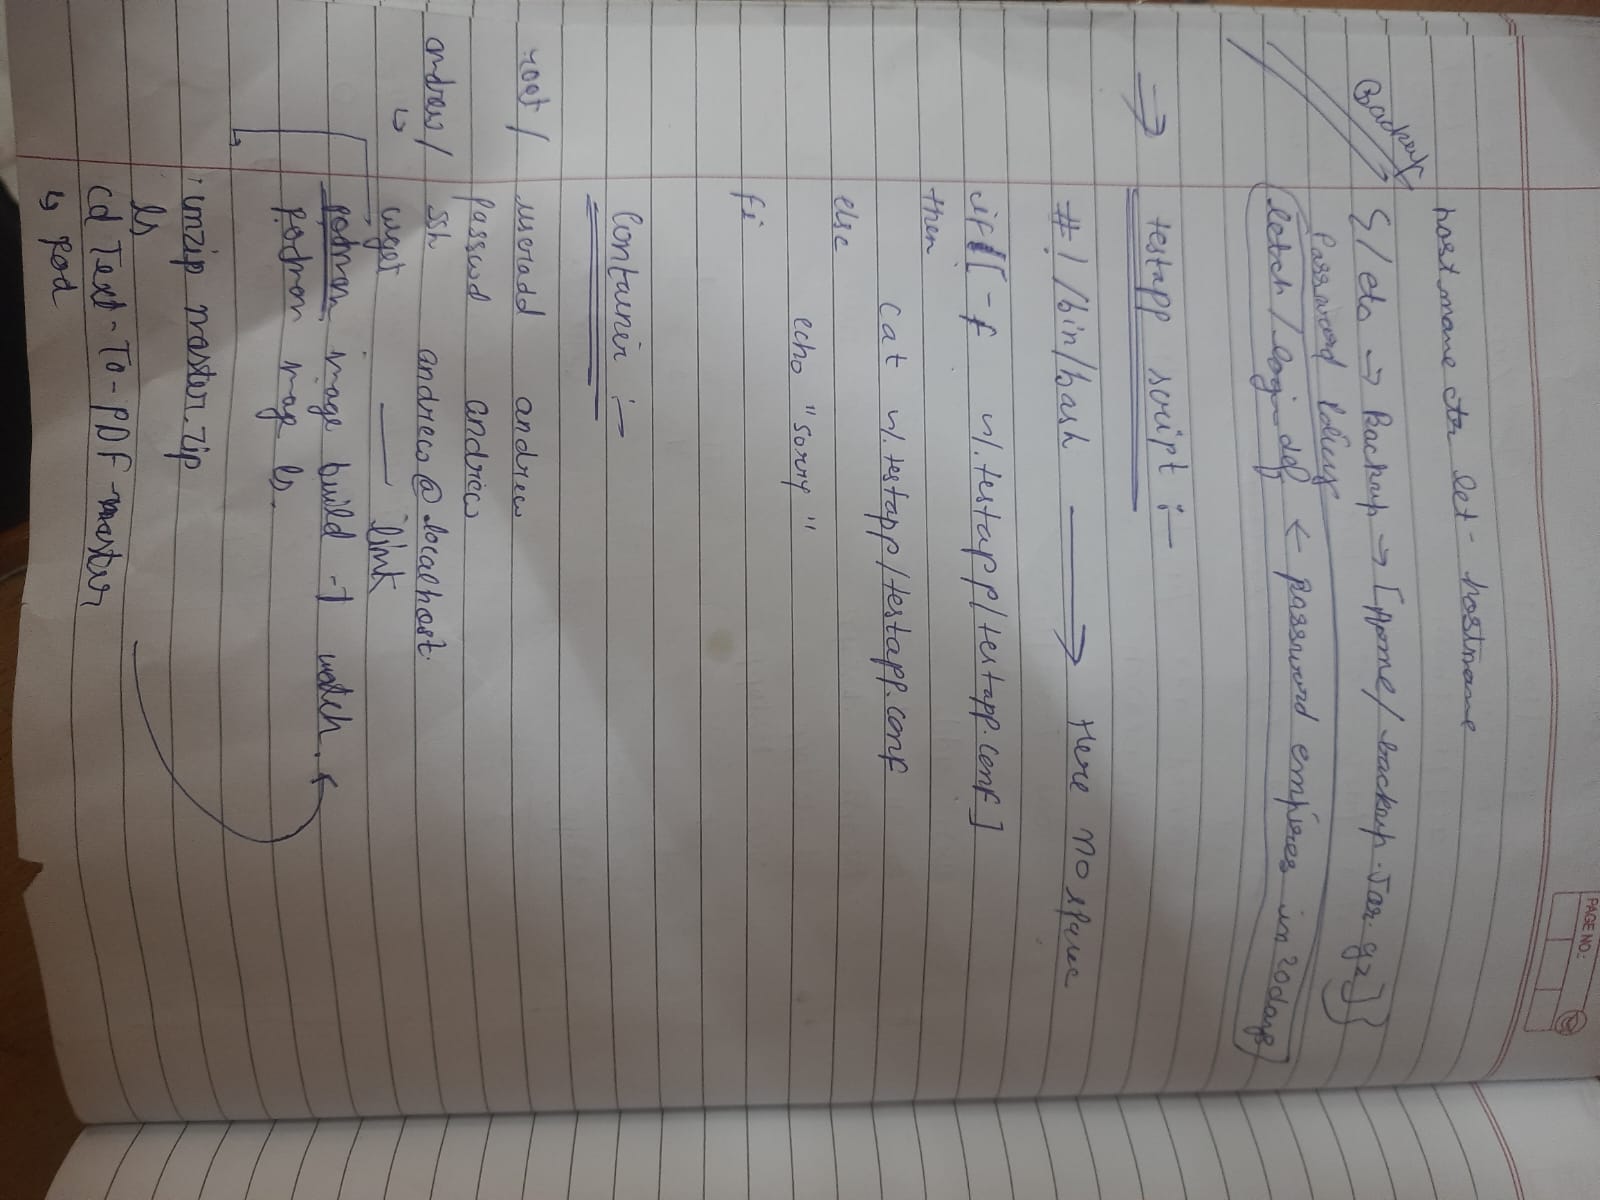 PAGE NO.:
hostmane ctr let - hostname
Backup
{/etc → Backup → [home/backup.Tar.gz]}
Password Policy
letch/login def ← password empires in 20 days
⇒ testapp script :-
#!/bin/bash → Here no space
if [ -f ~/.testapp/testapp.conf ]
then
cat ~/.testapp/testapp.conf
else
echo "sorry"
fi
Container :-
root/ useradd andrew
passwd andrew
andrew/ ssh andrew@localhost.
↳ wget — link
podman image build -t watch.
podman image ls.
unzip master.zip
ls
cd Text-To-PDF-master
↳ Pod